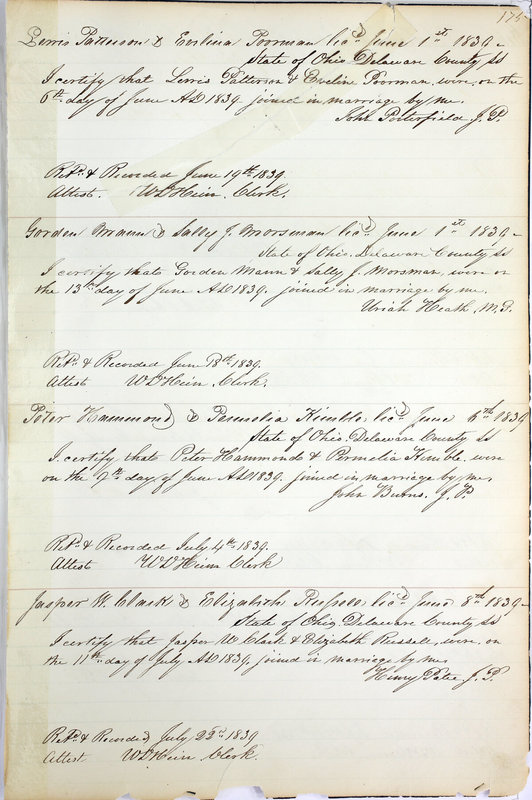 175
Lewis Patterson & Evelina Poorman lic'd June 1st 1839 -
State of Ohio Delaware County SS
I certify that Lewis Patterson & Eveline Poorman, were, on the
6th day of June AD 1839. joined in marriage by me.
John Porterfield J. P.
Ret'd & Recorded June 19th 1839.
Attest. W D Heim Clerk.
Gorden Mann & Sally J. Morsman lic'd June 1st 1839 -
State of Ohio, Delaware County SS
I certify that Gorden Mann & Sally J. Morsman, were on
the 13th day of June AD 1839. joined in marriage by me.
Uriah Heath, M. G.
Ret'd & Recorded June 18th 1839.
Attest W D Heim, Clerk.
Peter Hammond & Permelia Kimble lic'd June 6th 1839
State of Ohio. Delaware County SS
I. certify that Peter Hammond & Permelia Kimble. were
on the 7th day of June AD 1839. joined in marriage by me,
John Burns. J. P.
Ret'd & Recorded July 4th 1839.
Attest W D Heim Clerk
Jasper W. Clark & Elizabeth Russell lic'd June 8th 1839 -
State of Ohio, Delaware County SS
I certify that Jasper W Clark & Elizabeth Russell, were, on
the 11th day of July AD 1839. joined in marriage by me,
Henry Patee J. P.
Ret'd & Recorded July 22d 1839
Attest W D Heim Clerk.